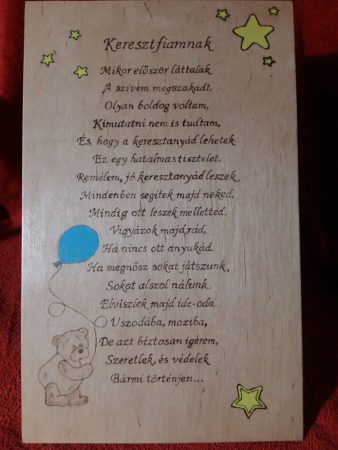 Keresztfiamnak
Mikor először láttalak
A szivem megszakadt,
Olyan boldog voltam,
Kimutatni nem is tudtam,
És, hogy a keresztanyád lehetek
Ez egy hatalmas tisztelet.
Remélem, jó keresztanyád leszek,
Mindenben segítek majd neked,
Mindig ott leszek melletted.
Vigyázok majd rád,
Ha nincs ott anyukád.
Ha megnősz sokat játszunk,
Sokat alszol nálunk.
Elviszlek majd ide-oda
Uszodába, moziba,
De azt biztosan igérem,
Szeretlek, és védelek
Bármi történjen...